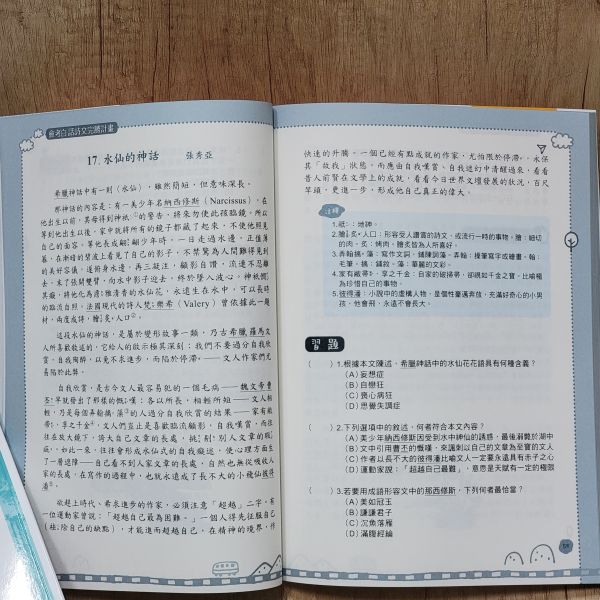 會考白話詩文完勝計畫
17. 水仙的神話 張秀亞
希臘神話中有一則〈水仙〉，雖然簡短，但意味深長。
那神話的內容是：有一美少年名納西修斯（Narcissus），在
他出生以前，其母得到神祇的警告，將來勿使此孩臨鏡，所以
等到他出生以後，家中就將所有的鏡子都藏了起來，不使他照見
自己的面容。等他長成翩翩少年時，一日走過水邊，正值薄
暮，在漸暗的碧波上看見了自己的影子，不禁驚為人間難得見到
的美好容儀，遂俯身水邊，再三凝注，顧影自讚，流連不忍離
去，末了張開雙臂，向水中影子迎去，終於墜入波心。神祇憫
其癡，將他化為清雅清香的水仙花，永遠生在水中，可以長時
的臨流自照。法國現代的詩人梵樂希（Valéry）曾依據此一題
材，兩度成詩，膾炙人口。
這段水仙的神話，是屬於變形故事一類，乃古希臘羅馬文
人所喜歡敘述的，它給人的啟示極其深刻：我們不要過分自我欣
賞，自我陶醉，以免不求進步，而陷於停滯。——文人作家們尤
易陷於此弊。
自我欣賞，是古今文人最容易犯的一個毛病——魏文帝曹
丕，早就發出了那樣的慨嘆：各以所長，相輕所短——文人相
輕，乃是每個弄翰搞藻的人過分自我欣賞的結果——家有敝
帚，享之千金；文人們豈止是喜歡臨流顧影，自我嘆賞，而往
往在放大鏡下，誇大自己文章的長處，挑剔別人文章的瑕
疵，如此一來，往往會形成水仙式的自我癡迷，使心理方面生
了一層遮障——自己看不到人家文章的長處，自然也無從吸收人
家的長處，在寫作的過程中，也就永遠成了長不大的小飛仙彼得
潘。
欲趕上時代、希求進步的作家，必須注意「超越」二字，有
一位運動家曾說：「超越自己最為困難。」一個人得先征服自己
（祛除自己的缺點），才能進而超越自己，在精神的境界，作
快速的升騰。一個已經有點成就的作家，尤怕限於停滯，永保
其「故我」狀態，而應由自我嘆賞、自我迷幻中清醒過來，看看
昔人前賢在文學上的成就，看看今日世界文壇發展的狀況，百尺
竿頭，更進一步，形成他自己真正的偉大。
注釋
1.祇：地神。
2.膾炙人口：形容受人讚賞的詩文，或流行一時的事物。膾：細切
的肉。炙：烤肉。膾炙皆為人所喜好。
3.弄翰搞藻：寫作文詞，鋪陳詞藻。弄翰：操筆寫字或繪畫。翰：
毛筆。搞：鋪敘。藻：華麗的文彩。
4.家有敝帚，享之千金：自家的破掃帚，卻視如千金之寶，比喻極
為珍惜自己的事物。
5.彼得潘：小說中的虛構人物，是個性豪邁奔放，充滿好奇心的小男
孩。他會飛，永遠不會長大。
習題
（ ）1.根據本文陳述，希臘神話中的水仙花花語具有何種含義？
(A) 妄想症
(B) 自戀狂
(C) 喪心病狂
(D) 思覺失調症
（ ）2.下列選項中的敘述，何者符合本文內容？
(A) 美少年納西修斯因受到水中神仙的誘惑，最後溺斃於湖中
(B) 文中引用曹丕的慨嘆，來諷刺以自己的文章為至寶的文人
(C) 作者以長不大的彼得潘比喻文人一定要永遠具有赤子之心
(D) 運動家說：「超越自己最難」，意思是天賦有一定的極限
（ ）3.若要用成語形容文中的那西修斯，下列何者最恰當？
(A) 美如冠玉
(B) 謙謙君子
(C) 沉魚落雁
(D) 滿腹經綸
59